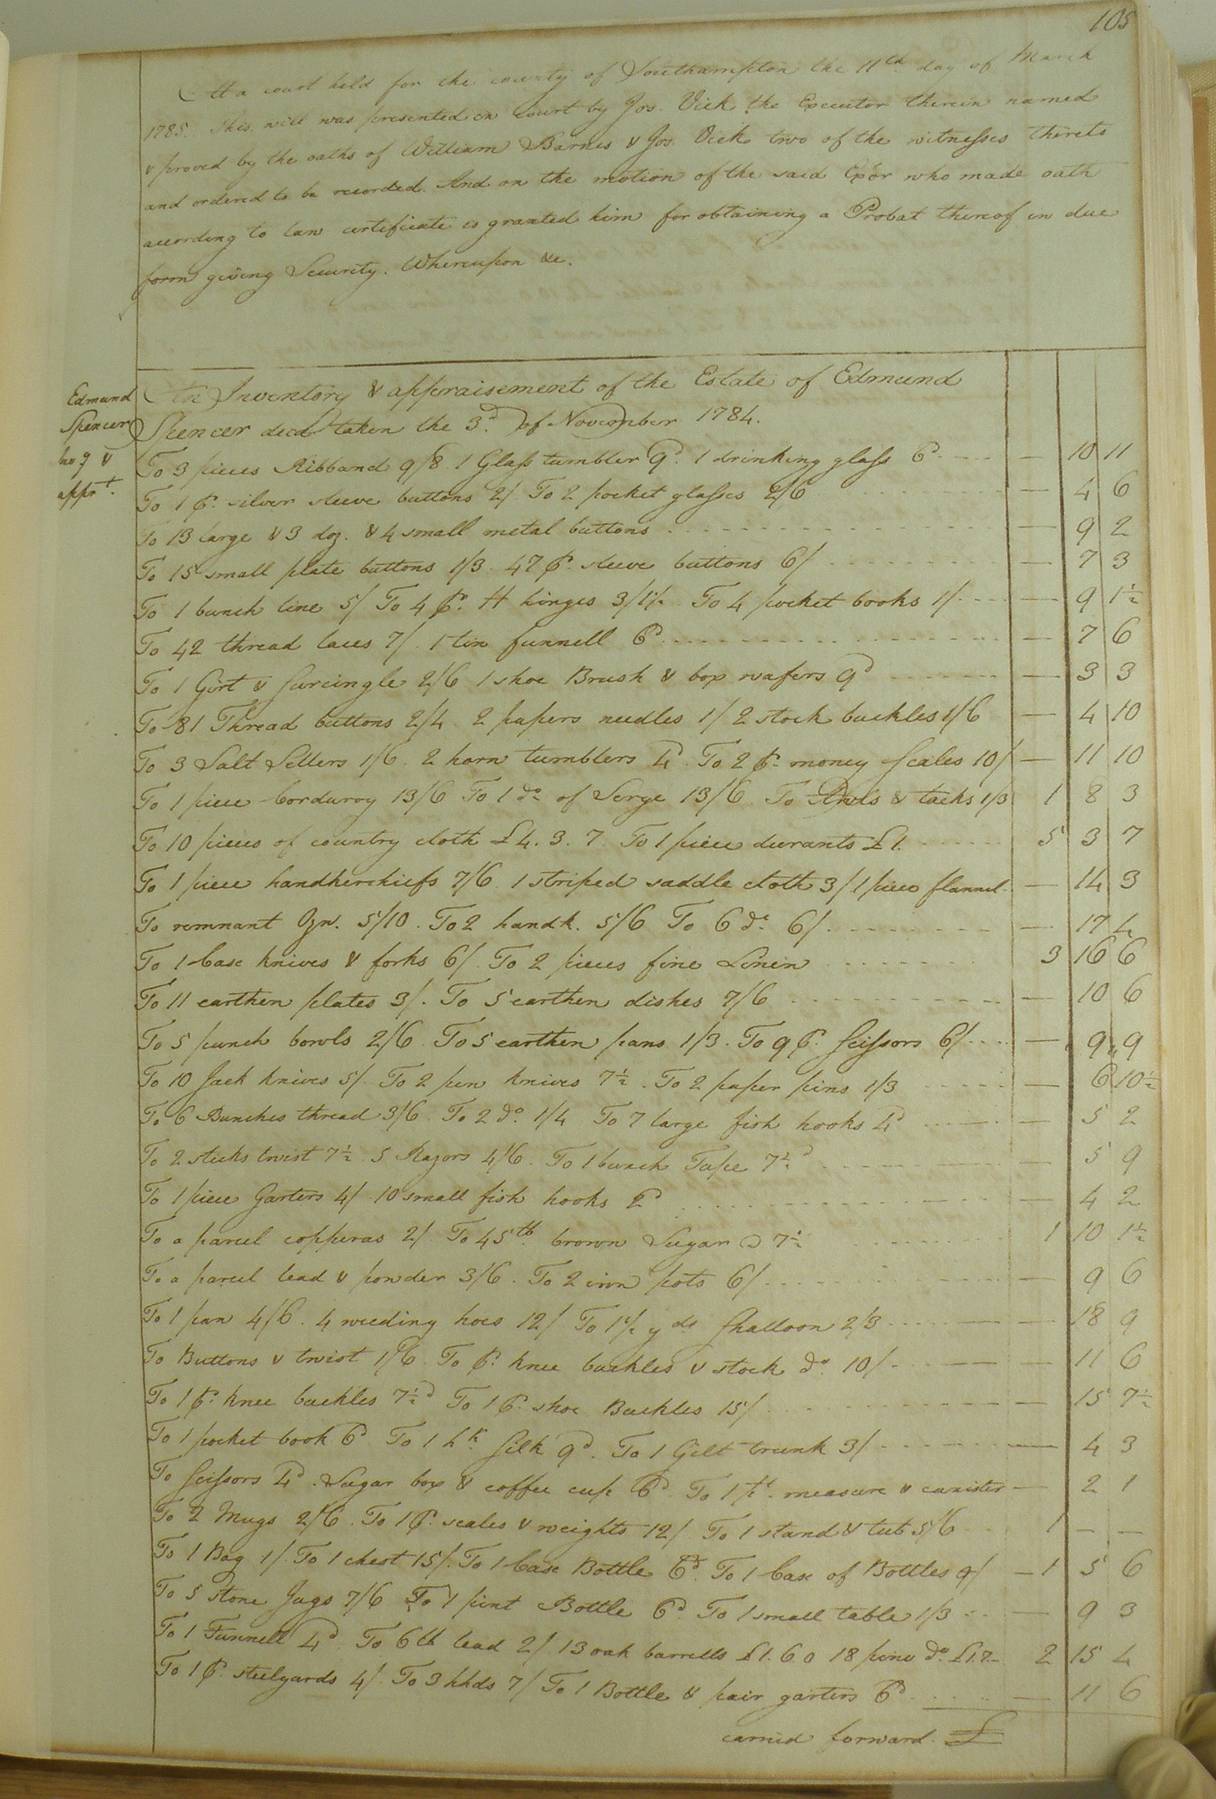 105
At a court held for the county of Southampton the 11th day of March
1785. This will was presented in Court by Jos. Vick the Executor therein named
& proved by the oaths of William Barnes & Jos. Vick two of the witnesses thereto
and ordered to be recorded. And on the motion of the said Exor who made oath
according to law certificate is granted him for obtaining a Probat thereof in due
form giving Security. Whereupon &c.
Edmund
Spencer
inv &
apprt.
An Inventory & appraisement of the Estate of Edmund
Spencer decd taken the 3d. of November 1784.
To 3 pieces Ribband 9/8 1 Glass tumbler 9d. 1 drinking glass 6d. — 10 11
To 1 pr. silver sleeve buttons 2/ To 2 pocket glasses 2/6 — 4 6
To 13 large & 3 doz. & 4 small metal buttons — 9 2
To 15 small plate buttons 1/3. 47 pr. sleeve buttons 6/ — 7 3
To 1 bunch line 5/ To 4 pr. H hinges 3/1½ To 4 pocket books 1/ — 9 1½
To 42 thread laces 7/. 1 tin funnell 6d — 7 6
To 1 Girt & Surcingle 2/6 1 shoe Brush & box wafers 9d — 3 3
To 81 Thread buttons 2/4. 2 papers needles 1/ 2 stock buckles 1/6 — 4 10
To 3 Salt Sellers 1/6. 2 horn tumblers 4d. To 2 pr. money Scales 10/ — 11 10
To 1 piece Corduroy 13/6 To 1 do. of Serge 13/6. To Awls & tacks 1/3 1 8 3
To 10 pieces of country cloth £4. 3. 7. To 1 piece durants £1. 5 3 7
To 1 piece handkerchiefs 7/6. 1 striped saddle cloth 3/ 1 piece flannel — 14 3
To remnant Ozn. 5/10. To 2 handk. 5/6 To 6 do. 6/. — 17 4
To 1 Case knives & forks 6/. To 2 pieces fine Linin 3 16 6
To 11 earthen plates 3/. To 5 earthen dishes 7/6 — 10 6
To 5 punch bowls 2/6. To 5 earthen pans 1/3. To 9 pr. Scissors 6/ — 9 9
To 10 Jack knives 5/. To 2 pen knives 7½. To 2 paper pins 1/3 — 6 10½
To 6 Bunches thread 3/6. To 2 do. 1/4 To 7 large fish hooks 4d — 5 2
To 2 sticks twist 7½ 5 Razors 4/6. To 1 bunch Tape 7½d — 5 9
To 1 piece Garters 4/ 10 small fish hooks 2d — 4 2
To a parcel copperas 2/ To 45 lb. brown Sugar @ 7½ 1 10 1½
To a parcel lead & powder 3/6. To 2 iron pots 6/ — 9 6
To 1 pan 4/6. 4 weeding hoes 12/ To 1½ yds Shalloon 2/3 — 18 9
To Buttons & twist 1/6. To pr. knee buckles & stock do. 10/ — 11 6
To 1 pr. knee buckles 7½d To 1 pr. shoe Buckles 15/ — 15 7½
To 1 pocket book 6d To 1 hk. Silk 9d. To 1 Gilt trunk 3/ — 4 3
To Scissors 4d. Sugar box & coffee cup 6d. To 1 pt. measure & canister — 2 1
To 2 Mugs 2/6. To 1 pr. scales & weights 12/ To 1 stand & tub 5/6 1 — —
To 1 Bag 1/. To 1 chest 15/. To 1 Case Bottle 6d. To 1 Case of Bottles 9/ — 1 5 6
To 5 stone Jugs 7/6 To 1 pint Bottle 6d. To 1 small table 1/3 — 9 3
To 1 Funnell 4d. To 6 lb lead 2/. 13 oak barrells £1. 6 0 18 pine do. £1.7 2 15 4
To 1 pr. steelyards 4/. To 3 hhds 7/ To 1 Bottle & pair garters 6d — 11 6
carried forward. £